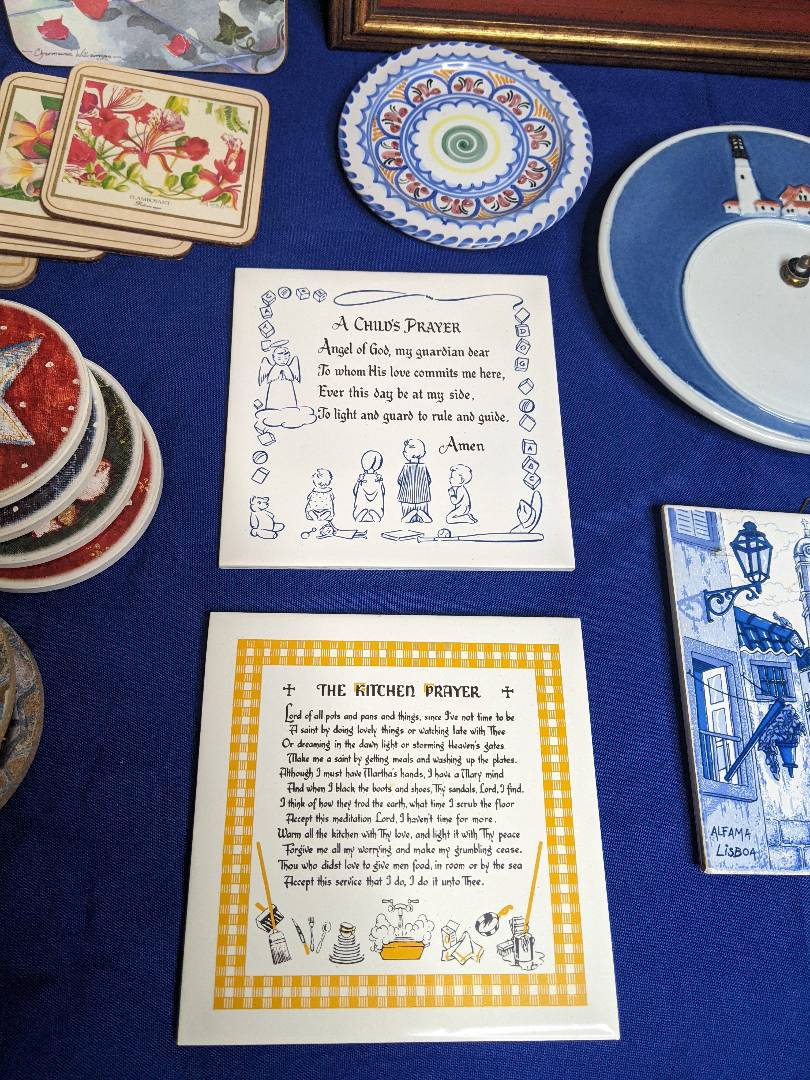 FLAMBOYANT
A CHILD'S PRAYER
Angel of God, my guardian dear
To whom His love commits me here,
Ever this day be at my side,
To light and guard to rule and guide.
Amen
D
O
G
A
B
C
THE KITCHEN PRAYER
Lord of all pots and pans and things, since I've not time to be
A saint by doing lovely things or watching late with Thee
Or dreaming in the dawn light or storming Heaven's gates
Make me a saint by getting meals and washing up the plates.
Although I must have Martha's hands, I have a Mary mind
And when I black the boots and shoes, Thy sandals, Lord, I find.
I think of how they trod the earth, what time I scrub the floor
Accept this meditation Lord, I haven't time for more.
Warm all the kitchen with Thy love, and light it with Thy peace
Forgive me all my worrying and make my grumbling cease.
Thou who didst love to give men food, in room or by the sea
Accept this service that I do, I do it unto Thee.
ALFAMA
LISBOA